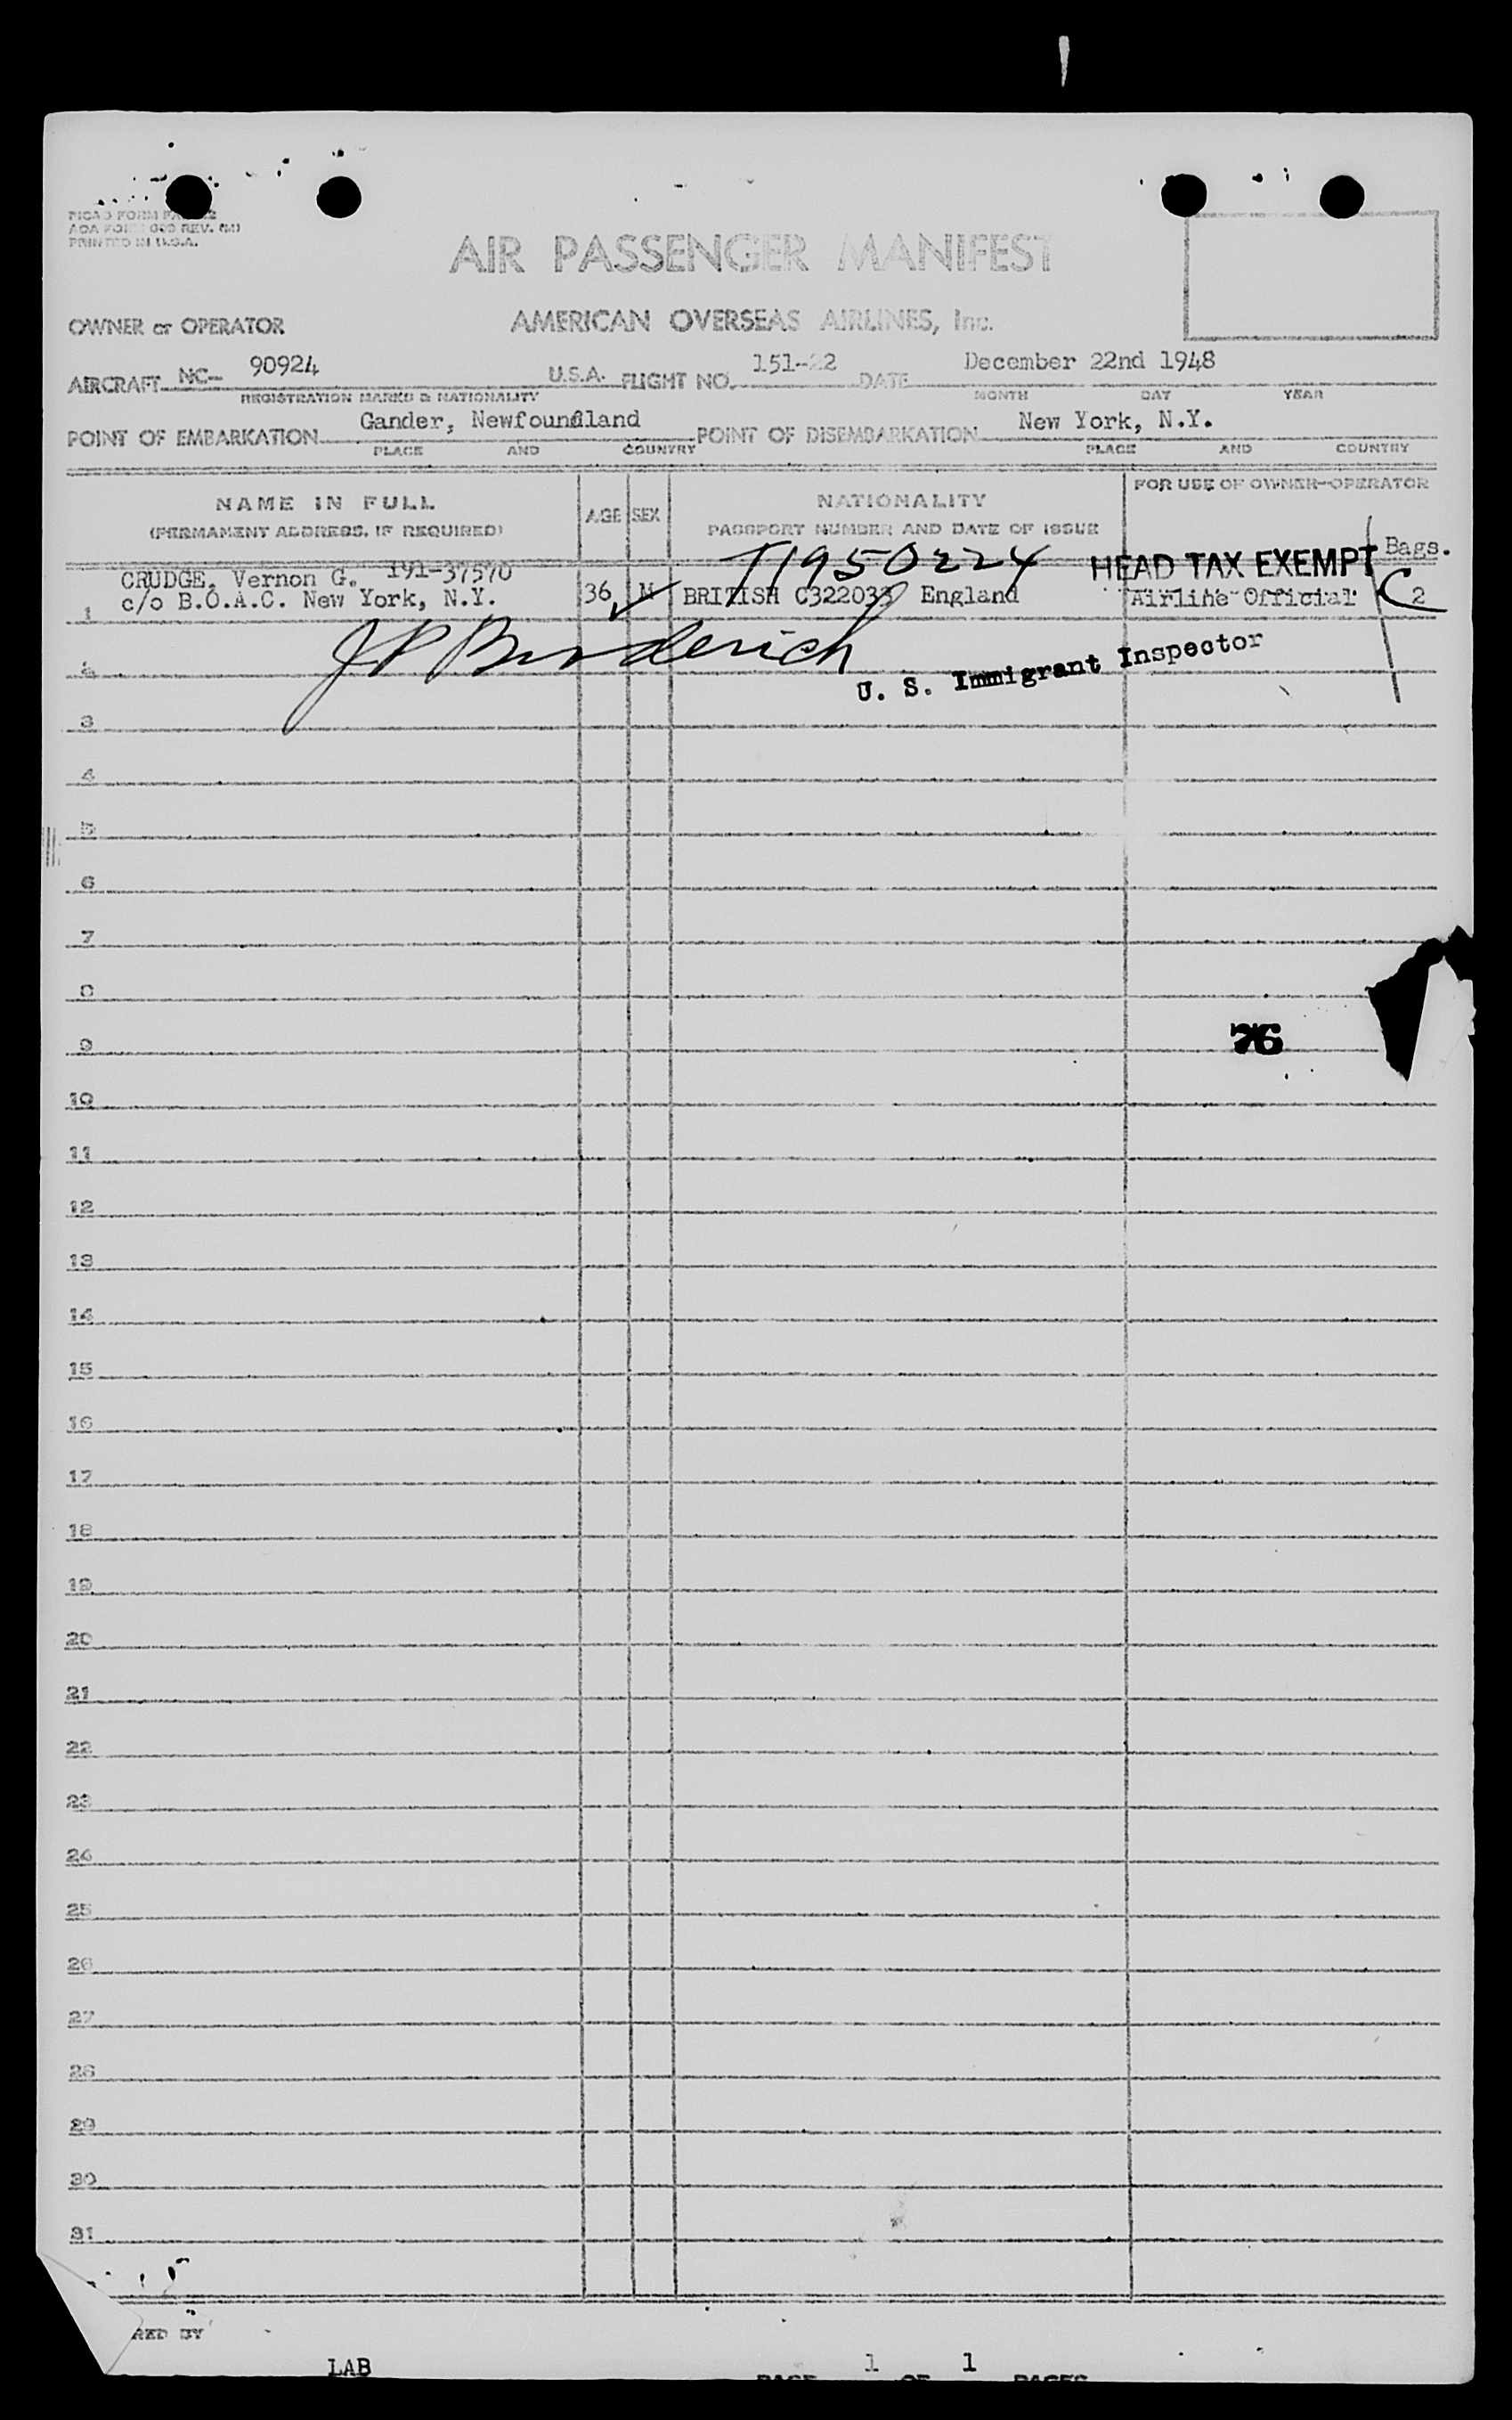 AIR PASSENGER MANIFEST
PRINTED IN U.S.A.
OWNER or OPERATOR AMERICAN OVERSEAS AIRLINES, Inc.
AIRCRAFT NC- 90924 U.S.A. FLIGHT NO. 151-22 DATE December 22nd 1948
REGISTRATION MARKS & NATIONALITY MONTH DAY YEAR
POINT OF EMBARKATION Gander, Newfoundland POINT OF DISEMBARKATION New York, N.Y.
PLACE AND COUNTRY PLACE AND COUNTRY
NAME IN FULL AGE SEX NATIONALITY FOR USE OF OWNER-OPERATOR
(PERMANENT ADDRESS, IF REQUIRED) PASSPORT NUMBER AND DATE OF ISSUE
T1950224 HEAD TAX EXEMPT Bags.
CRUDGE, Vernon G. 191-37570
1 c/o B.O.A.C. New York, N.Y. 36 M BRITISH England Airline Official 2
J P Broderick
U. S. Immigrant Inspector
2
3
4
5
6
7
8
9
76
10
11
12
13
14
15
16
17
18
19
20
21
22
23
24
25
26
27
28
29
30
31
RED BY
LAB PAGE 1 OF 1 PAGES